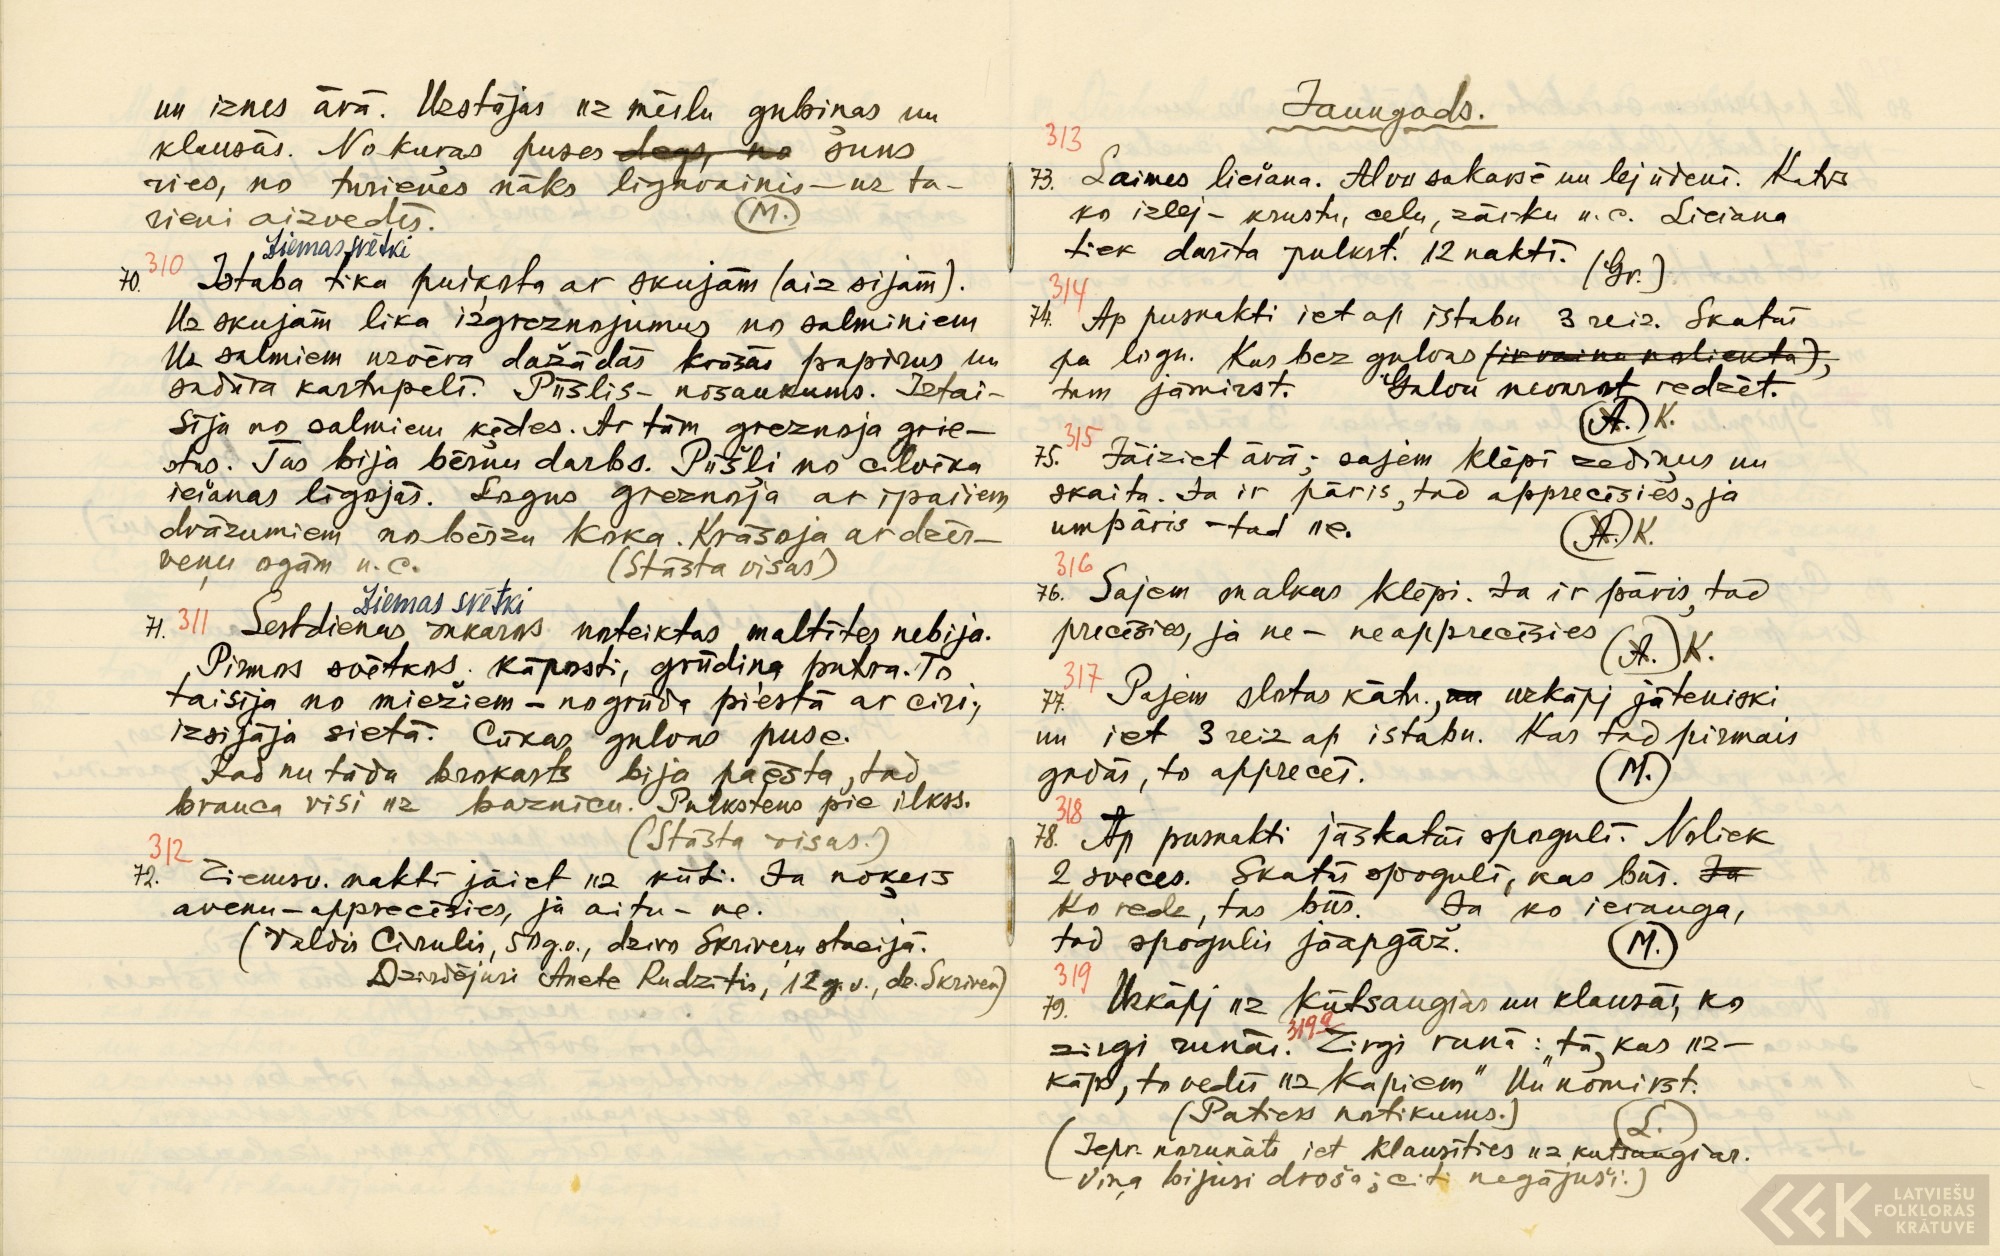 un iznes ārā. Uzstājas uz mēslu gubiņas un
klausās. No kuŗas puses degs, no suns
ries, no turienes nāks līgavainis – uz tu-
rieni aizvedīs. (M.)
Ziemas svētki
70. 310 Istaba tika puškota ar skujām (aiz sijām).
Uz skujām lika izgreznojumus no salmiņiem
Uz salmiem uzvēra dažādās krāsās papirus un
sadūra kartupelī. Pūšlis – nosaukums. Iztai-
sīja no salmiem ķēdes. Ar tām greznoja grie-
stus. Tas bija bērnu darbs. Pūšļi no cilvēka
iešanas līgojās. Logus greznoja ar īpašiem
drāzumiem no bērzu koka. Krāsoja ar dzēr-
veņu ogām u.c. (Stāsta visas)
Ziemas svētki
71. 311 Sestdienas vakaros noteiktas maltītes nebija.
Pirmos svētkos: kāposti, grūdiņa putra. To
taisīja no miežiem – nogrūda piestā ar ciri,
izsijāja sietā. Cūkas galvas puse.
Kad nu tāda brokasts bija paēsta, tad
brauca visi uz baznīcu. Pulkstens pie ilkss.
(Stāsta visas.)
312
72. Ziemsv. naktī jāiet uz kūti. Ja noķeŗs
avenu – apprecēsies, ja aitu – ne.
(Valdis Cīrulis, 50 g.v., dzīvo Skrīveru stacijā.
Dzirdējusi Anete Rudzītis, 12 g.v., dz. Skrīveri)
Jaungads.
313
73. Laimes liešana. Alvu sakarsē un lej ūdenī. Katrs
ko izlej – krustu, ceļu, zārku u.c. Liešana
tiek darīta pulkst. 12 naktī. (Gr.)
314
74. Ap pusnakti iet ap istabu 3 reiz. Skatās
pa logu. Kas bez galvas (ir vainu noliekta),
tam jāmirst. Galvu nevarot redzēt.
(A.) K.
315
75. Jāiziet ārā; saņem klēpī zediņus un
skaita. Ja ir pāris, tad apprecēsies, ja
umpāris – tad ne. (A.) K.
316
76. Saņem malkas klēpi. Ja ir pāris, tad
precēsies, ja ne – neapprecēsies (A.) K.
317
77. Paņem slotas kātu, un uzkāpj jāteniski
un iet 3 reiz ap istabu. Kas tad pirmais
gadās, to apprecēs. (M.)
318
78. Ap pusnakti jāskatās spogulī. Noliek
2 sveces. Skatās spogulī, kas būs. Ja
Ko redz, tas būs. Ja ko ierauga,
tad spogulis jāapgāž. (M.)
319
79. Uzkāpj uz kūtsaugšas un klausās, ko
zirgi runās. 319a Zirgi runā: "tā, kas uz-
kāps, to vedīs uz kapiem" Un nomirst.
(Patiess notikums.) (L.)
(Iepr. norunāts iet klausīties uz kutsaugšas.
Viņa bijusi droša; citi negājuši.)
LATVIEŠU
FOLKLORAS
KRĀTUVE